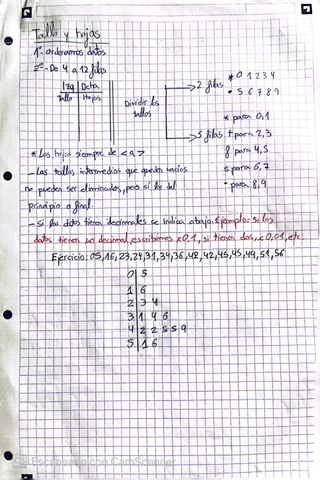 Tallo y hojas
1º- Ordenamos datos
2º- De 4 a 12 filas
Izq Dcha
Tallo Hojas
Dividir los tallos
2 filas
* 0 1 2 3 4
· 5 6 7 8 9
5 filas
* para 0,1
t para 2,3
f para 4,5
s para 6,7
· para 8,9
* Las hojas siempre de <a>
- Los tallos intermedios que queden vacíos
no pueden ser eliminados, pero sí los del
principio o final.
- Si los datos tienen decimales se indica abajo. Ejemplo: Si los
datos tienen un decimal, escribimos x0,1, si tienen dos, x0,01, etc.
Ejercicio: 05,16,23,24,31,34,36,42,42,45,45,49,51,56
0 5
1 6
2 3 4
3 1 4 6
4 2 2 5 5 9
5 1 6
CS Escaneado con CamScanner